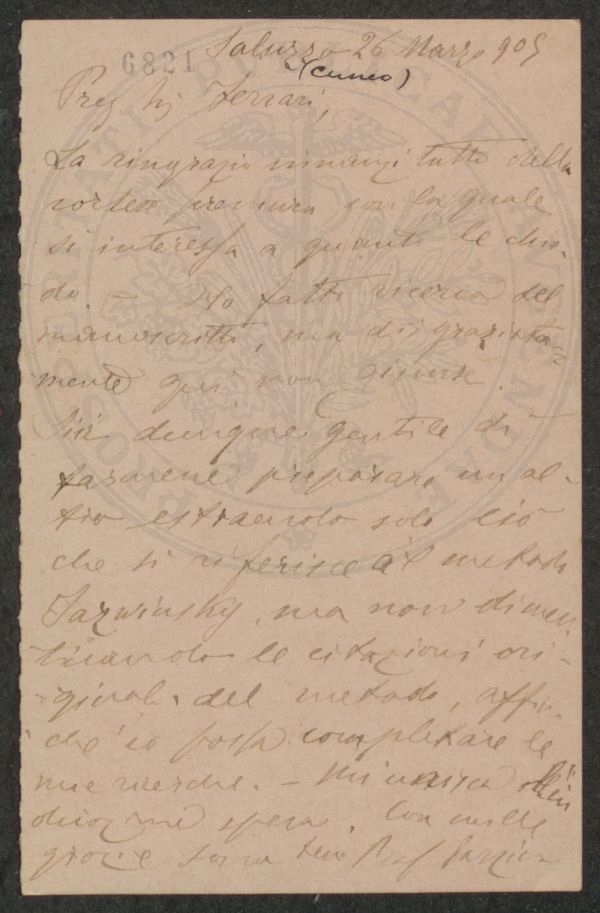 6821
Saluzzo 26 Marzo 905
(Cuneo)
Preg Sig Ferrari,
La ringrazio innanzi tutto della
cortese premura con la quale
si interessa a quanto le chie-
do. — Ho fatto ricerca del
manoscritto, ma disgraziata-
mente qui non giunse.
Sia dunque gentile di
farmene preparare un al-
tro estraendo solo ciò
che si riferisce al metodo
ma non dimen
ticando le citazioni ori-
ginali del metodo, affin-
ché io possa completare le
mie ricerche. — Mi unisca
spesa. Con mille
grazie Prof